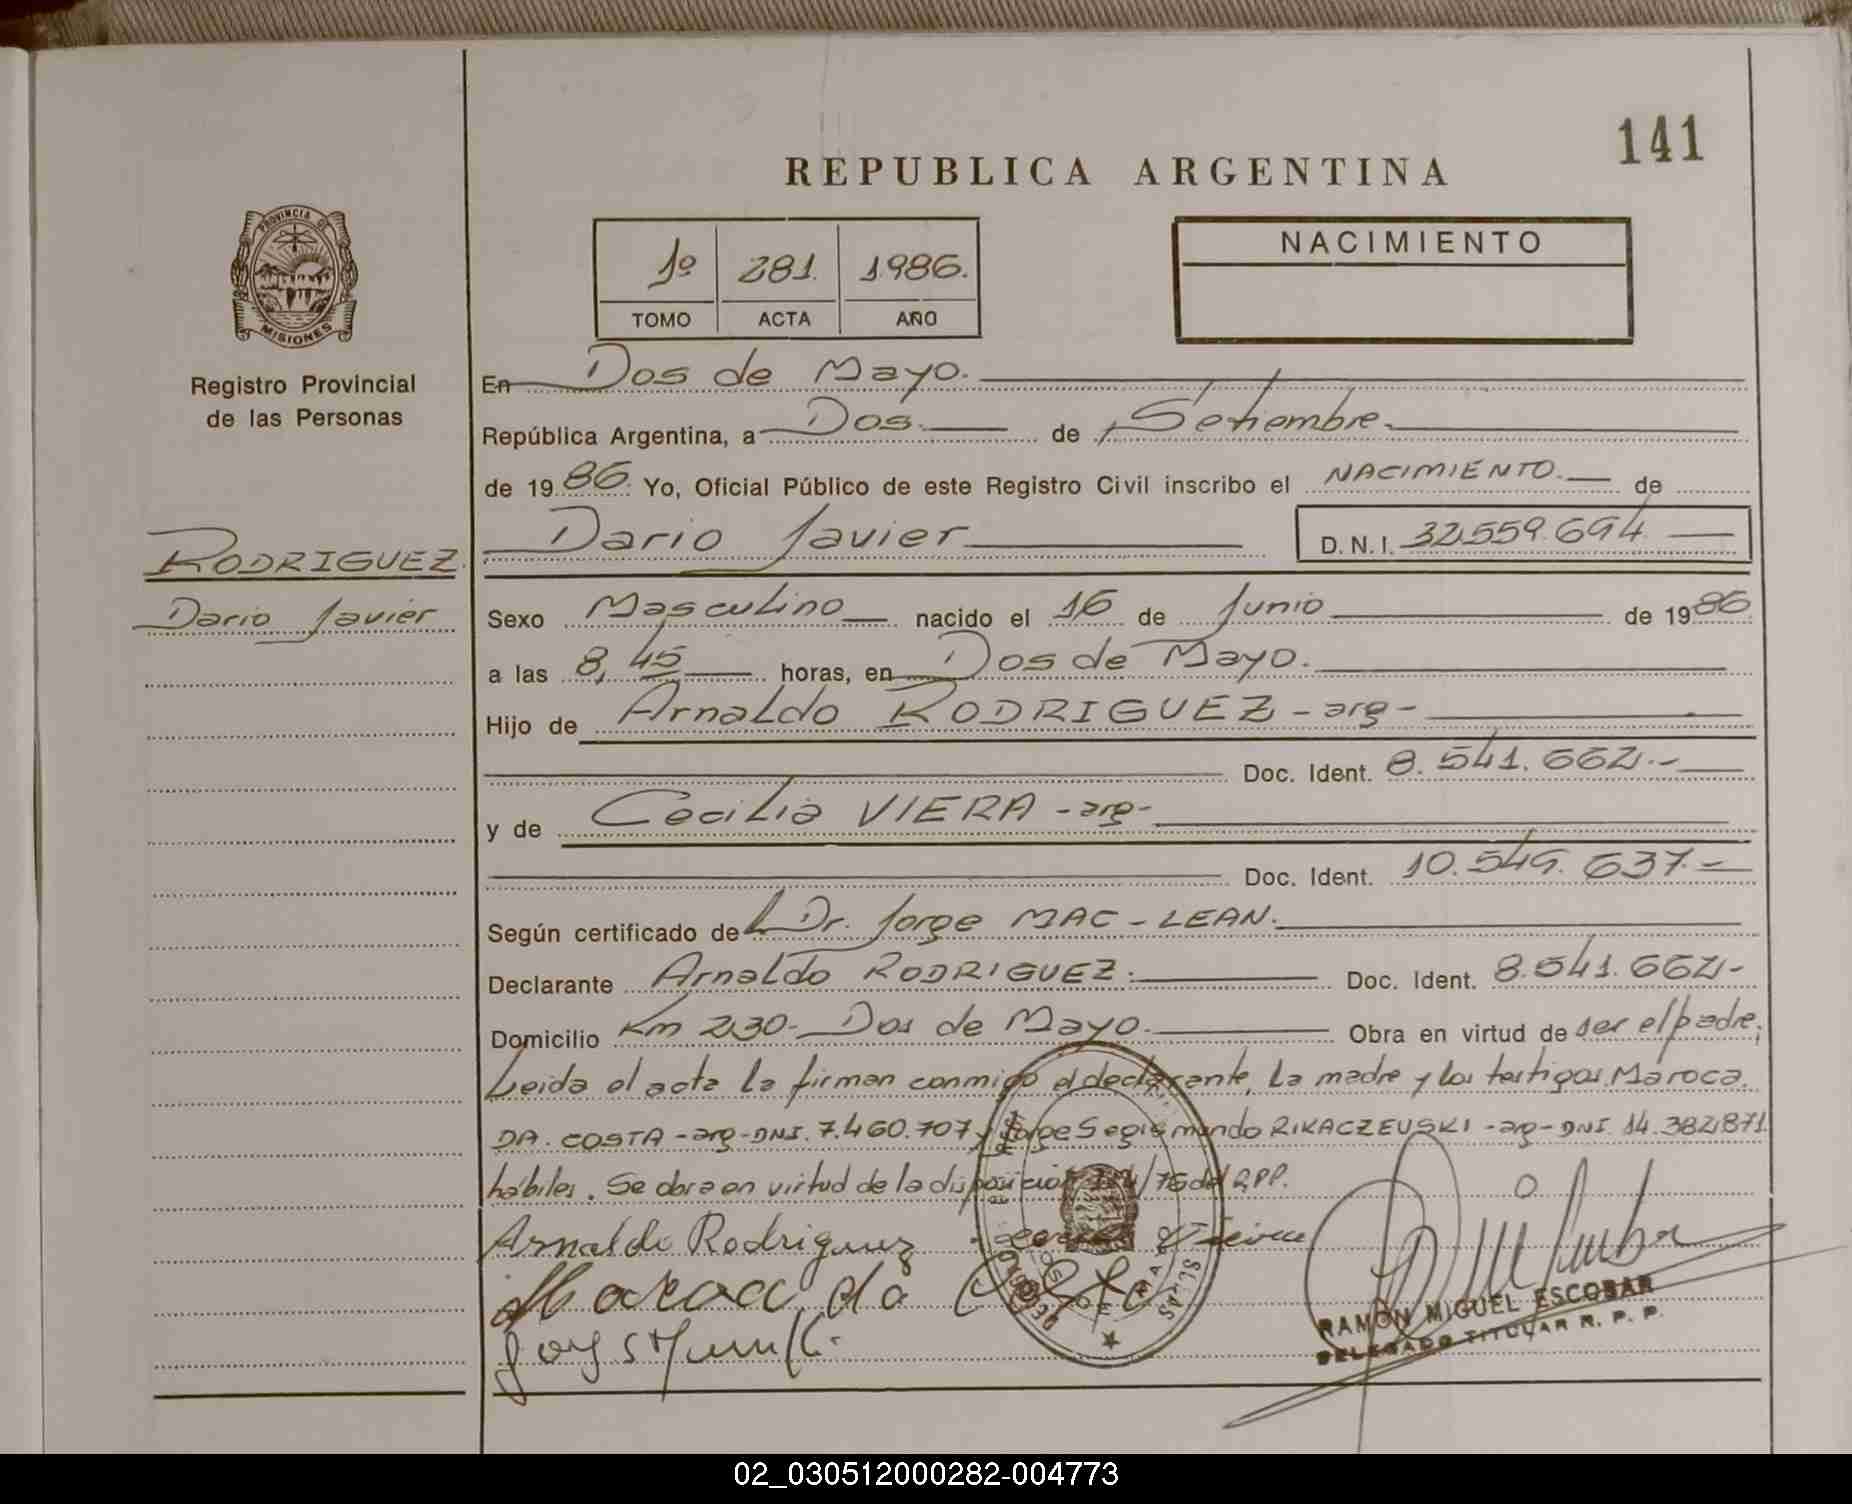 141
REPUBLICA ARGENTINA
PROVINCIA DE
MISIONES
1º 281. 1986.
TOMO ACTA AÑO
NACIMIENTO
Registro Provincial
de las Personas
En Dos de Mayo.
República Argentina, a Dos. de Setiembre.
de 1986. Yo, Oficial Público de este Registro Civil inscribo el NACIMIENTO. de
RODRIGUEZ.
Dario Javier
Dario Javier D.N.I. 32.559.694
Sexo Masculino nacido el 16 de Junio de 1986
a las 8,45 horas, en Dos de Mayo.
Hijo de Arnaldo RODRIGUEZ - arg -
Doc. Ident. 8.541.662.-
y de Cecilia VIERA - arg -
Doc. Ident. 10.549.637.-
Según certificado del Dr. Jorge MAC-LEAN.
Declarante Arnaldo RODRIGUEZ. Doc. Ident. 8.541.662.-
Domicilio Km 230- Dos de Mayo. Obra en virtud de ser el padre;
Leida el acta la firman conmigo el declarante, la madre y los testigos Maroca
DA. COSTA - arg - DNI. 7.460.707 y Jorge Segismundo RIKACZEUSKI - arg - DNI. 14.382.871
hábiles. Se obra en virtud de la disposición /76 del RPP.
Arnaldo Rodriguez
Maroca da Costa
RAMÓN MIGUEL ESCOBAR
DELEGADO TITULAR R. P. P.
02_030512000282-004773